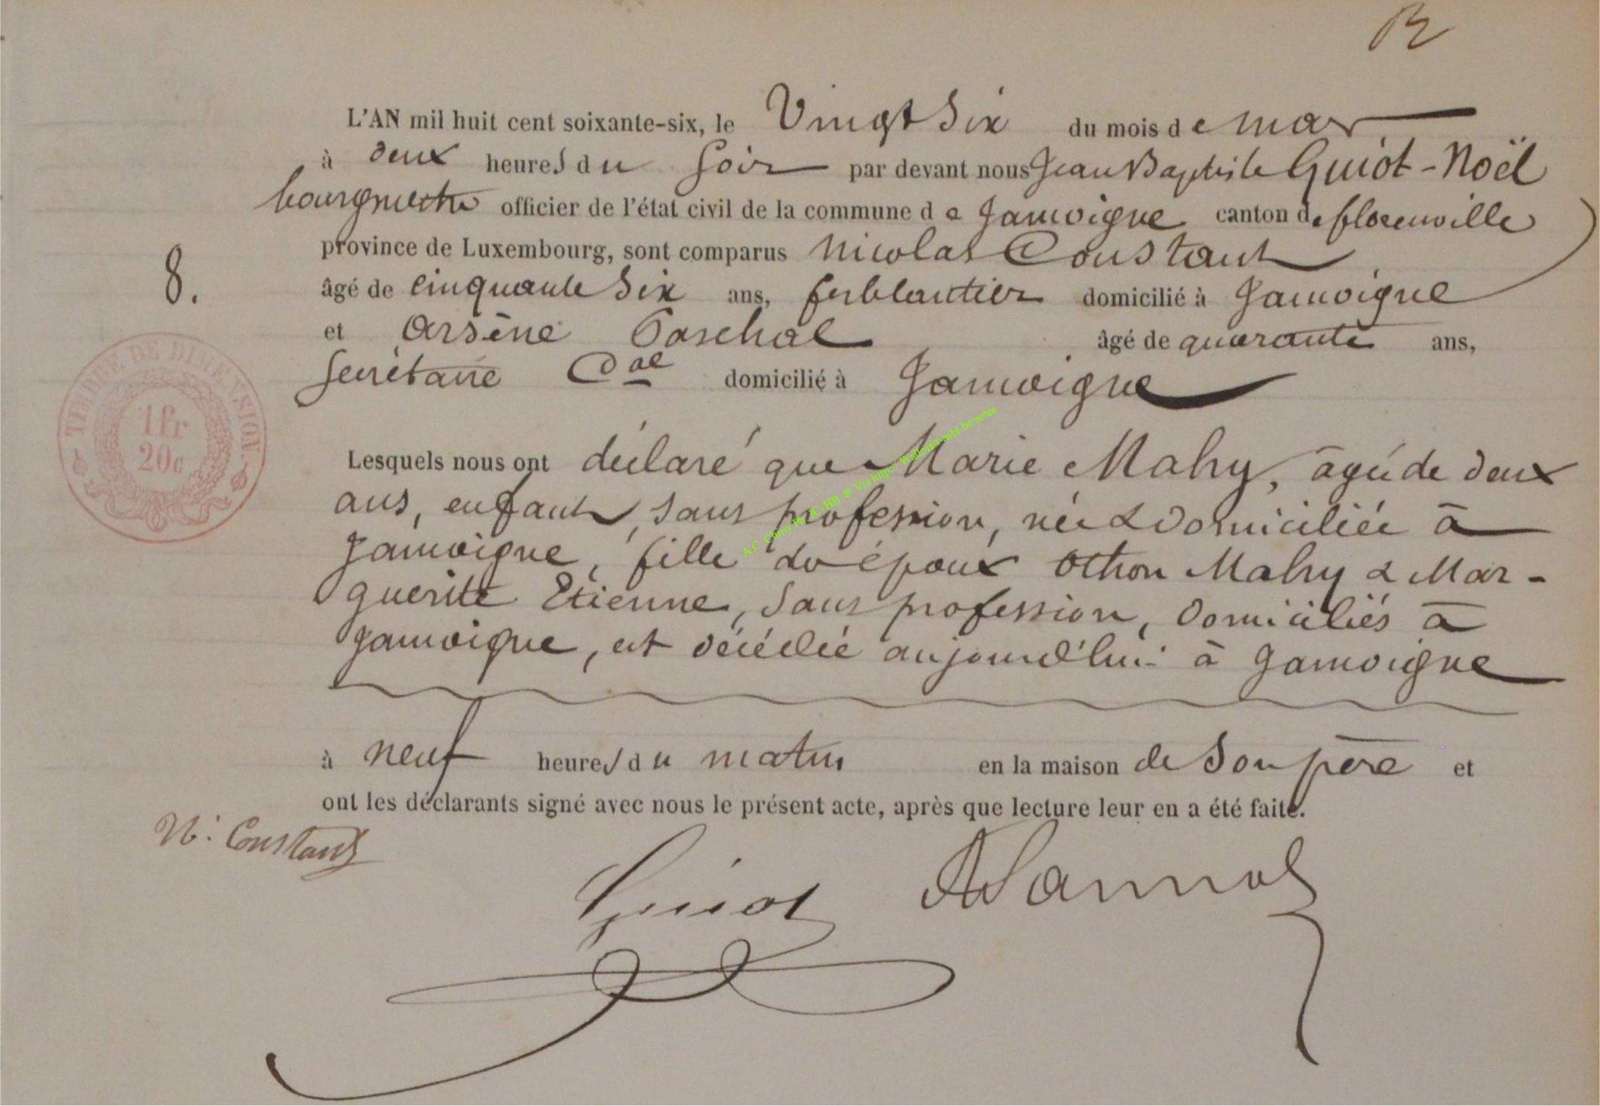 L'AN mil huit cent soixante-six, le Vingt Six du mois de mars
à deux heures du Soir par devant nous Jean Baptiste Guiot-Noël
bourgmestre officier de l'état civil de la commune de Jamoigne canton de florenville
province de Luxembourg, sont comparus Nicolas Constant
8.
âgé de cinquante Six ans, ferblantier domicilié à Jamoigne
et Arsène Paschal âgé de quarante ans,
Secrétaire Cal domicilié à Jamoigne
TIMBRE DE DIMENSION
1 fr
20 c
Lesquels nous ont déclaré que Marie Mahy, âgée de deux
ans, enfant, sans profession, née & domiciliée à
Jamoigne, fille des époux Othon Mahy & Mar-
guerite Etienne, sans profession, domiciliés à
Jamoigne, est décédée aujourd'hui à Jamoigne
à neuf heures du matin en la maison de son père et
ont les déclarants signé avec nous le présent acte, après que lecture leur en a été faite.
N. Constant
Guiot